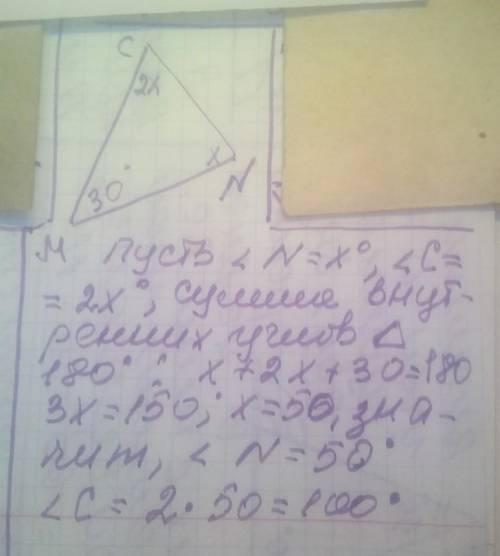 C
2x
x
30°
N
M Пусть ∠N=x°, ∠C=
=2x°, сумма внут-
ренних углов △
180°; x+2x+30=180
3x=150; x=50, зна-
чит, ∠N=50°
∠C=2·50=100°